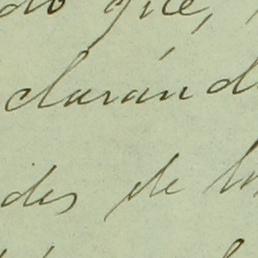 do que,
claránd
des de lo